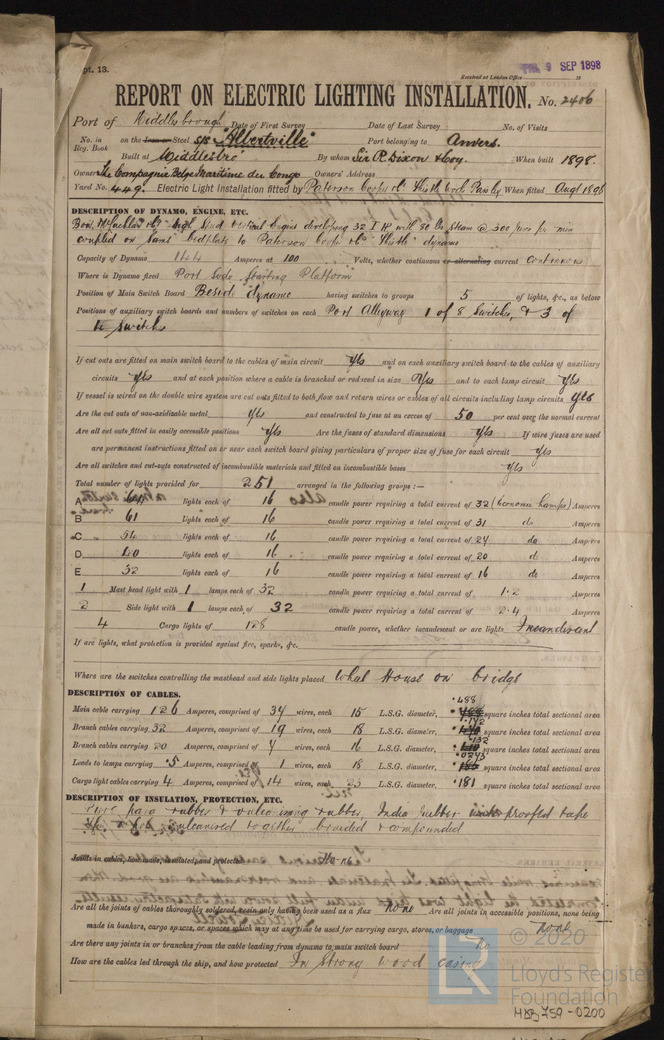 pt. 13.
9 SEP 1898
Received at London Office
REPORT ON ELECTRIC LIGHTING INSTALLATION. No. 2406
Port of Middlesbrough Date of First Survey Date of Last Survey No. of Visits
No. in Reg. Book on the Iron or Steel S/S "Albertville" Port belonging to Anvers.
Built at Middlesbro' By whom Sir R. Dixon & Coy. When built 1898.
Owners The Compagnie Belge Maritime du Congo Owners' Address
Yard No. 449. Electric Light Installation fitted by Paterson Cooper When fitted Augt 1898
DESCRIPTION OF DYNAMO, ENGINE, ETC.
high vertical Engine developing 32 I.H. with 80 lbs steam @ 300 per min
coupled on same bedplate to Paterson Cooper dynamo
Capacity of Dynamo 144 Amperes at 100 Volts, whether continuous or alternating current continuous
Where is Dynamo fixed Port Side Starting Platform
Position of Main Switch Board Beside dynamo having switches to groups 5 of lights, &c., as below
Positions of auxiliary switch boards and numbers of switches on each Port Alleyway 1 of 8 Switches, & 3 of
Switches
If cut outs are fitted on main switch board to the cables of main circuit yes and on each auxiliary switch board to the cables of auxiliary
circuits yes and at each position where a cable is branched or reduced in size yes and to each lamp circuit yes
If vessel is wired on the double wire system are cut outs fitted to both flow and return wires or cables of all circuits including lamp circuits yes
Are the cut outs of non-oxidizable metal yes and constructed to fuse at an excess of 50 per cent over the normal current
Are all cut outs fitted in easily accessible positions yes Are the fuses of standard dimensions yes If wire fuses are used
are permanent instructions fitted on or near each switch board giving particulars of proper size of fuse for each circuit yes
Are all switches and cut-outs constructed of incombustible materials and fitted on incombustible bases yes
Total number of lights provided for 251 arranged in the following groups :—
A lights each of 16 candle power requiring a total current of 32 (Economic Lamps) Amperes
B 61 lights each of 16 candle power requiring a total current of 31 do Amperes
C 54 lights each of 16 candle power requiring a total current of 24 do Amperes
D 40 lights each of 16 candle power requiring a total current of 20 do Amperes
E 32 lights each of 16 candle power requiring a total current of 16 do Amperes
1 Mast head light with 1 lamps each of 32 candle power requiring a total current of 1.2 Amperes
2 Side light with 1 lamps each of 32 candle power requiring a total current of 2.4 Amperes
4 Cargo lights of 128 candle power, whether incandescent or arc lights Incandescent
If arc lights, what protection is provided against fire, sparks, &c.
Where are the switches controlling the masthead and side lights placed Wheel House on bridge
DESCRIPTION OF CABLES.
Main cable carrying 126 Amperes, comprised of 37 wires, each 15 L.S.G. diameter, .488 square inches total sectional area
Branch cables carrying 32 Amperes, comprised of 19 wires, each 18 L.S.G. diameter, square inches total sectional area
Branch cables carrying 20 Amperes, comprised of 7 wires, each 16 L.S.G. diameter, square inches total sectional area
Leads to lamps carrying .5 Amperes, comprised of 1 wires, each 18 L.S.G. diameter, square inches total sectional area
Cargo light cables carrying 4 Amperes, comprised of wires, each L.S.G. diameter, .181 square inches total sectional area
DESCRIPTION OF INSULATION, PROTECTION, ETC.
Pure para rubber & vulcanizing rubber, India rubber proofed tape
vulcanized together, braided & compounded
Joints in cables, how made, insulated, and protected None
Are all the joints of cables thoroughly soldered, resin only having been used as a flux none Are all joints in accessible positions, none being
made in bunkers, cargo spaces, or spaces which may at any time be used for carrying cargo, stores, or baggage none
Are there any joints in or branches from the cable leading from dynamo to main switch board No
How are the cables led through the ship, and how protected In strong wood casing
© 2020
Lloyd's Register
Foundation
LR
-0200